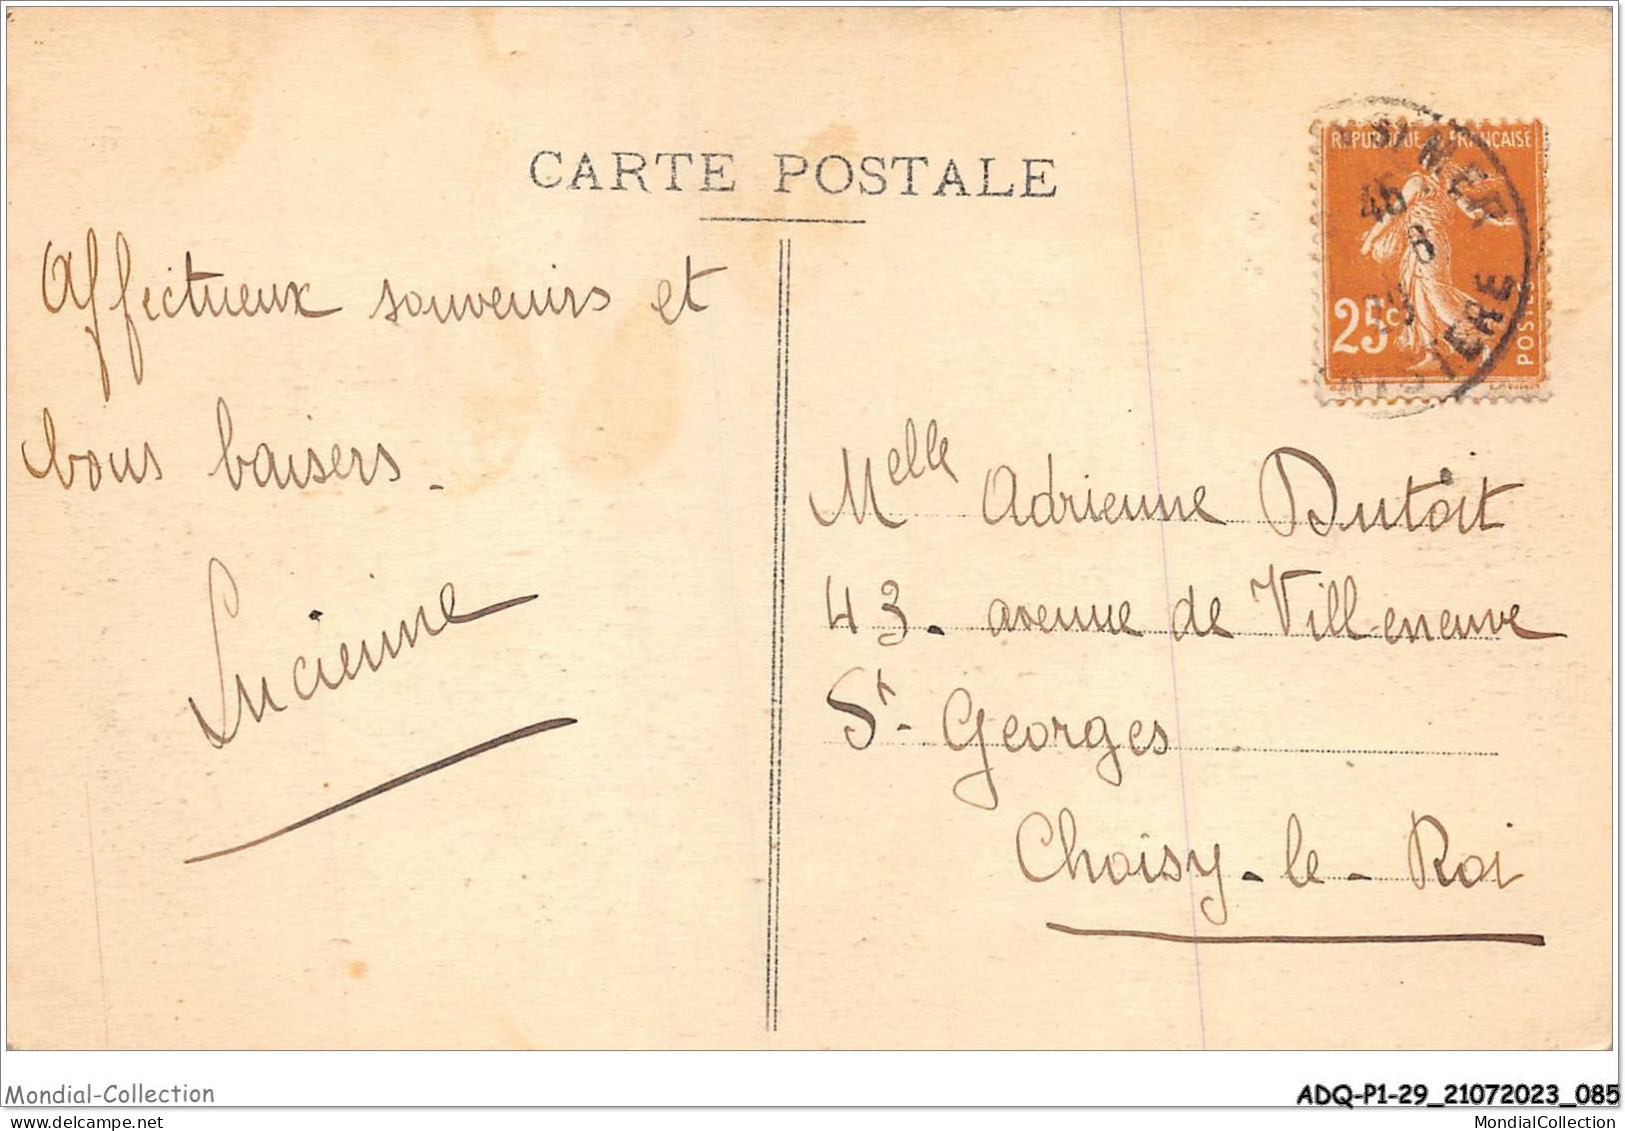 CARTE POSTALE
Affectueux souvenirs et
bons baisers.
Lucienne
REPUBLIQUE FRANÇAISE
25c
POSTES
S/ MER
FINISTERE
Melle Adrienne Dutoit
43. avenue de Villeneuve
St. Georges
Choisy-le-Roi
Mondial-Collection
ADQ-P1-29_21072023_085
MondialCollection